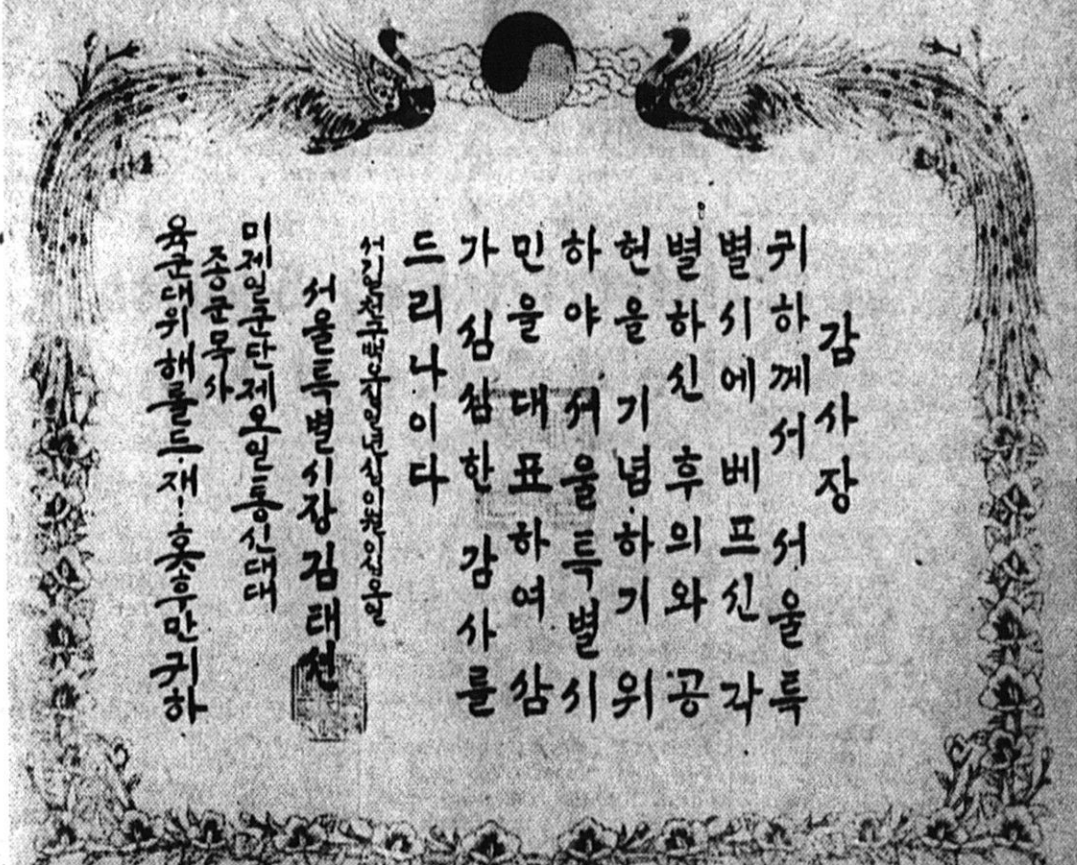 감사장
귀하께서 서울특
별시에 베프신 각
별하신 후의와 공
헌을 기념하기 위
하야 서울특별시
민을 대표하여 삼
가 심삼한 감사를
드리나이다
서기일천구백오십일년십이월이십오일
서울특별시장 김태선
미제일군단제오일통신대대
종군목사
육군대위 해롤드·재!홋후만귀하